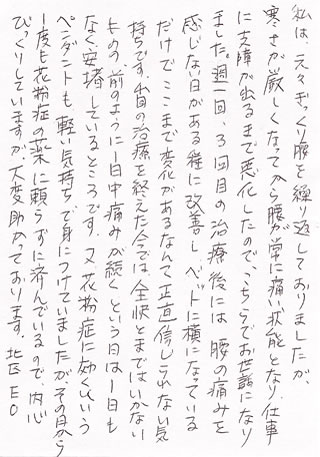 私は、元々ぎっくり腰を繰り返しておりましたが、
寒さが厳しくなってから腰が常に痛い状態となり、仕事
に支障が出るまで悪化したので、こちらでお世話になり
ました。週一回、3回目の治療後には、腰の痛みを
感じない日がある程に改善し、ベットに横になっている
だけで、ここまで変化があるなんて正直信じられない気
持ちです。8回の治療を終えた今では、全快とまではいかない
ものの、前のように1日中痛みが続くという日は1日も
なく、安堵しているところです。又、花粉症に効くという
ペンダントも、軽い気持ちで身につけていましたが、その日から
1度も花粉症の薬に頼らずに済んでいるので、内心
びっくりしていますが、大変助かっております。 北区 E・O